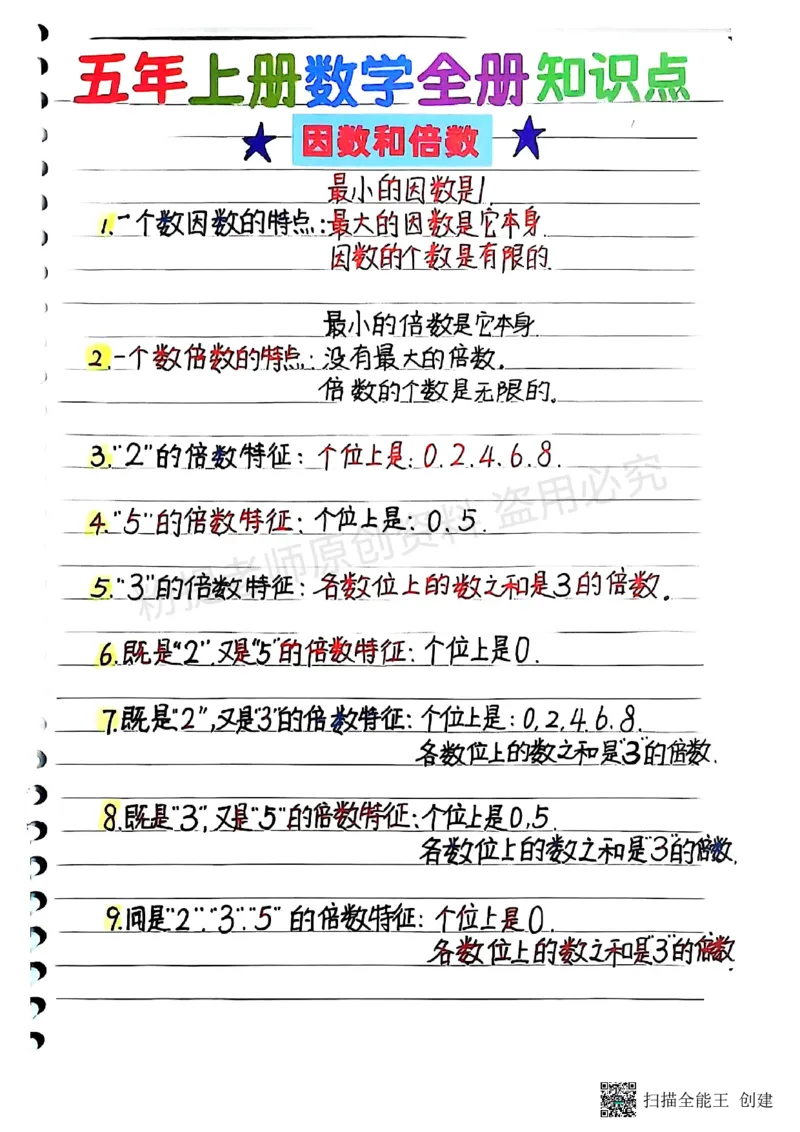 五年上册数学全册知识点
因数和倍数
最小的因数是1.
1.一个数因数的特点:最大的因数是它本身.
因数的个数是有限的.
最小的倍数是它本身.
2.一个数倍数的特点:没有最大的倍数.
倍数的个数是无限的.
3."2"的倍数特征:个位上是:0.2.4.6.8.
4."5"的倍数特征:个位上是:0.5.
5."3"的倍数特征:各数位上的数之和是3的倍数.
6.既是"2",又是"5"的倍数特征:个位上是0.
7.既是"2",又是"3"的倍数特征:个位上是:0,2,4.6.8.
各数位上的数之和是"3"的倍数.
8.既是"3",又是"5"的倍数特征:个位上是0,5.
各数位上的数之和是"3"的倍数.
9.同是"2"."3"."5"的倍数特征:个位上是0.
各数位上的数之和是"3"的倍数.
老师原创资料 盗用必究
扫描全能王 创建